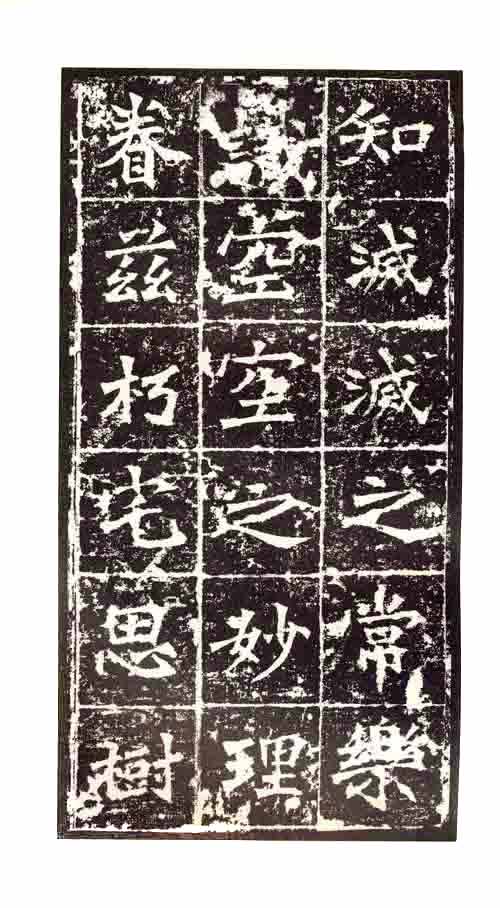 知滅滅之常樂
識空空之妙理
眷茲朽宅思樹